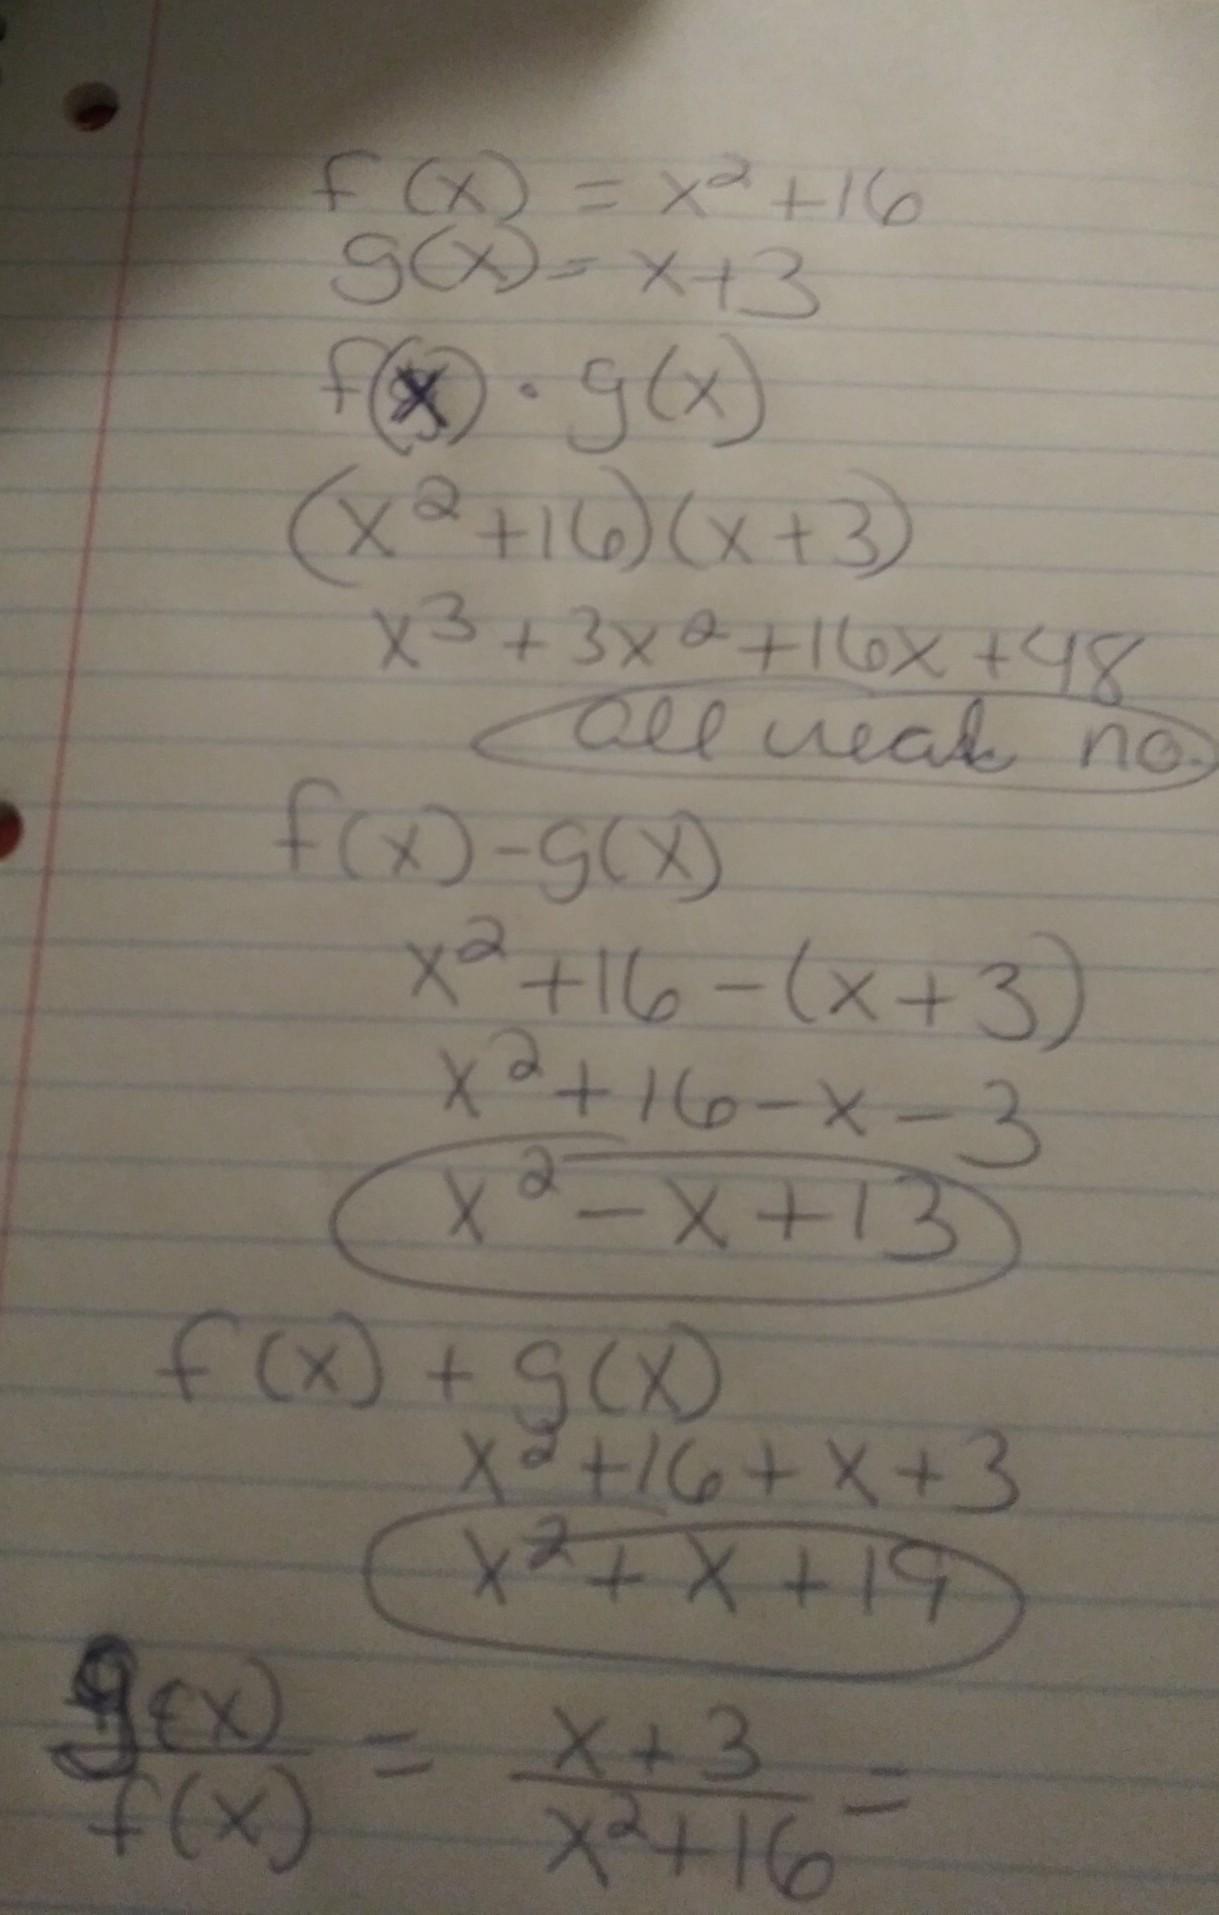 f(x) = x² + 16
g(x) = x + 3
f(x) · g(x)
(x² + 16)(x + 3)
x³ + 3x² + 16x + 48
all real no.
f(x) - g(x)
x² + 16 - (x + 3)
x² + 16 - x - 3
x² - x + 13
f(x) + g(x)
x² + 16 + x + 3
x² + x + 19
g(x)/f(x) = (x + 3)/(x² + 16) =